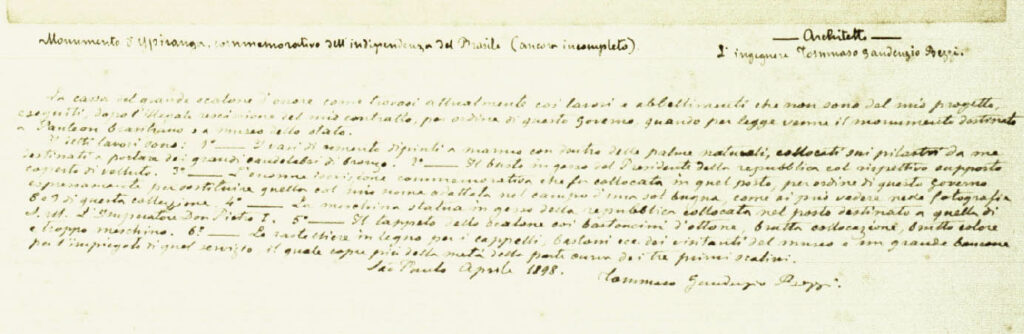 Monumento d'Ypiranga, commemorativo dell'indipendenza del Brasile (ancora incompleto)
Architetto
L'ingegnere Tommaso Gaudenzio Bezzi.
La cassa del grande scalone d'onore come trovasi attualmente coi lavori e abbellimenti che non sono del mio progetto,
eseguiti, dopo l'illegale rescissione del mio contratto, per ordine di questo Governo, quando per legge venne il monumento destinato
a Panteon e a museo dello stato.
I detti lavori sono: 1º — I vasi di cemento dipinti a marmo con delle palme naturali, collocati sui pilastri da me
destinati a portare dei grandi candelabri di bronzo. 2º — Il busto in gesso del Presidente della repubblica col rispettivo supporto
coperto di velluto. 3º — L'enorme iscrizione commemorativa che fu collocata in quel posto, per ordine di questo Governo
espressamente per sostituire quella col mio nome adattata nel campo d'una sol bugna, come si può vedere nella fotografia
6 o 7 di questa collezione. 4º — La meschina statua in gesso della repubblica collocata nel posto destinato a quella di
S. M. L'Imperatore Don Pietro I. 5º — Il tappeto dello scalone coi bastoncini d'ottone, brutta collocazione, brutto colore
e troppo meschino. 6º — Le rastelliere in legno per i cappelli, bastoni ecc. dei visitanti del museo e un grande bancone
per l'impiegato di quel servizio il quale copre più della metà della parte curva dei tre primi scalini.
São Paulo Aprile 1898.
Tommaso Gaudenzio Bezzi.